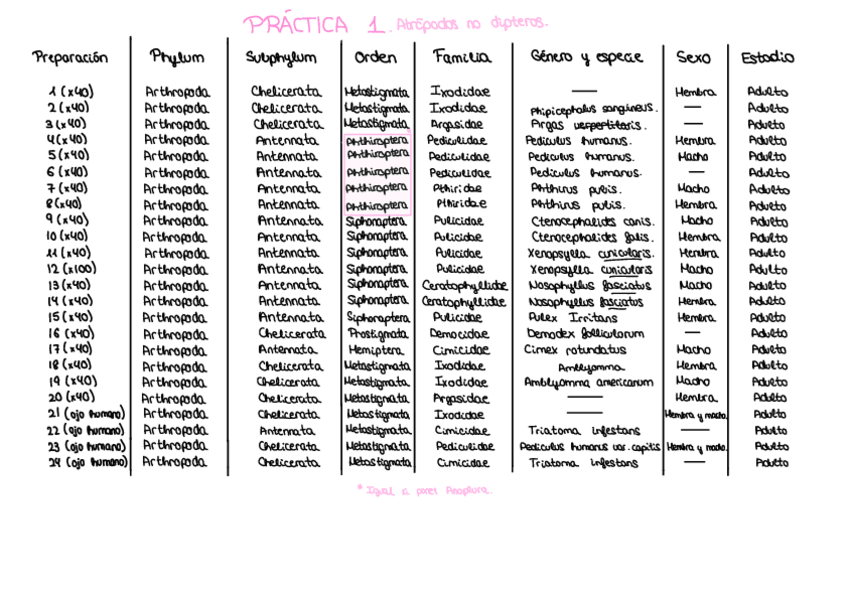 PRÁCTICA 1. Atrépodos no dípteros.
Preparación Phylum Subphylum Orden Familia Género y especie Sexo Estadio
1 (x40) Arthropoda Chelicerata Metastigmata Ixodidae — Hembra Adulto
2 (x40) Arthropoda Chelicerata Metastigmata Ixodidae Phipicephalus sangineus. — Adulto
3 (x40) Arthropoda Chelicerata Metastigmata Argasidae Argas vespertiloris. — Adulto
4 (x40) Arthropoda Antennata Phthiraptera Pediculidae Pediculus humanus. Hembra Adulto
5 (x40) Arthropoda Antennata Phthiraptera Pediculidae Pediculus humanus. Macho Adulto
6 (x40) Arthropoda Antennata Phthiraptera Pediculidae Pediculus humanus. — Adulto
7 (x40) Arthropoda Antennata Phthiraptera Pthiridae Phthirus pubis. Macho Adulto
8 (x40) Arthropoda Antennata Phthiraptera Pthiridae Phthirus pubis. Hembra Adulto
9 (x40) Arthropoda Antennata Siphonaptera Pulicidae Ctenocephalides canis. Macho Adulto
10 (x40) Arthropoda Antennata Siphonaptera Pulicidae Ctenocephalides felis. Hembra Adulto
11 (x40) Arthropoda Antennata Siphonaptera Pulicidae Xenopsylla cunicularis. Hembra Adulto
12 (x100) Arthropoda Antennata Siphonaptera Pulicidae Xenopsylla cunicularis Macho Adulto
13 (x40) Arthropoda Antennata Siphonaptera Ceratophyllidae Nosophyllus fasciatus Macho Adulto
14 (x40) Arthropoda Antennata Siphonaptera Ceratophyllidae Nosophyllus fasciatus Hembra Adulto
15 (x40) Arthropoda Antennata Siphonaptera Pulicidae Pulex Irritans Hembra Adulto
16 (x40) Arthropoda Chelicerata Prostigmata Democidae Demodex folliculorum — Adulto
17 (x40) Arthropoda Antennata Hemiptera Cimicidae Cimex rotundatus Macho Adulto
18 (x40) Arthropoda Chelicerata Metastigmata Ixodidae Amblyomma Hembra Adulto
19 (x40) Arthropoda Chelicerata Metastigmata Ixodidae Amblyomma americanum Macho Adulto
20 (x40) Arthropoda Chelicerata Metastigmata Argasidae — Hembra Adulto
21 (ojo humano) Arthropoda Chelicerata Metastigmata Ixodidae — Hembra y macho. Adulto
22 (ojo humano) Arthropoda Antennata Metastigmata Cimicidae Triatoma infestans — Adulto
23 (ojo humano) Arthropoda Chelicerata Metastigmata Pediculidae Pediculus humanus var. capitis Hembra y macho. Adulto
24 (ojo humano) Arthropoda Chelicerata Metastigmata Cimicidae Triatoma infestans — Adulto
* Igual a poner Anoplura.